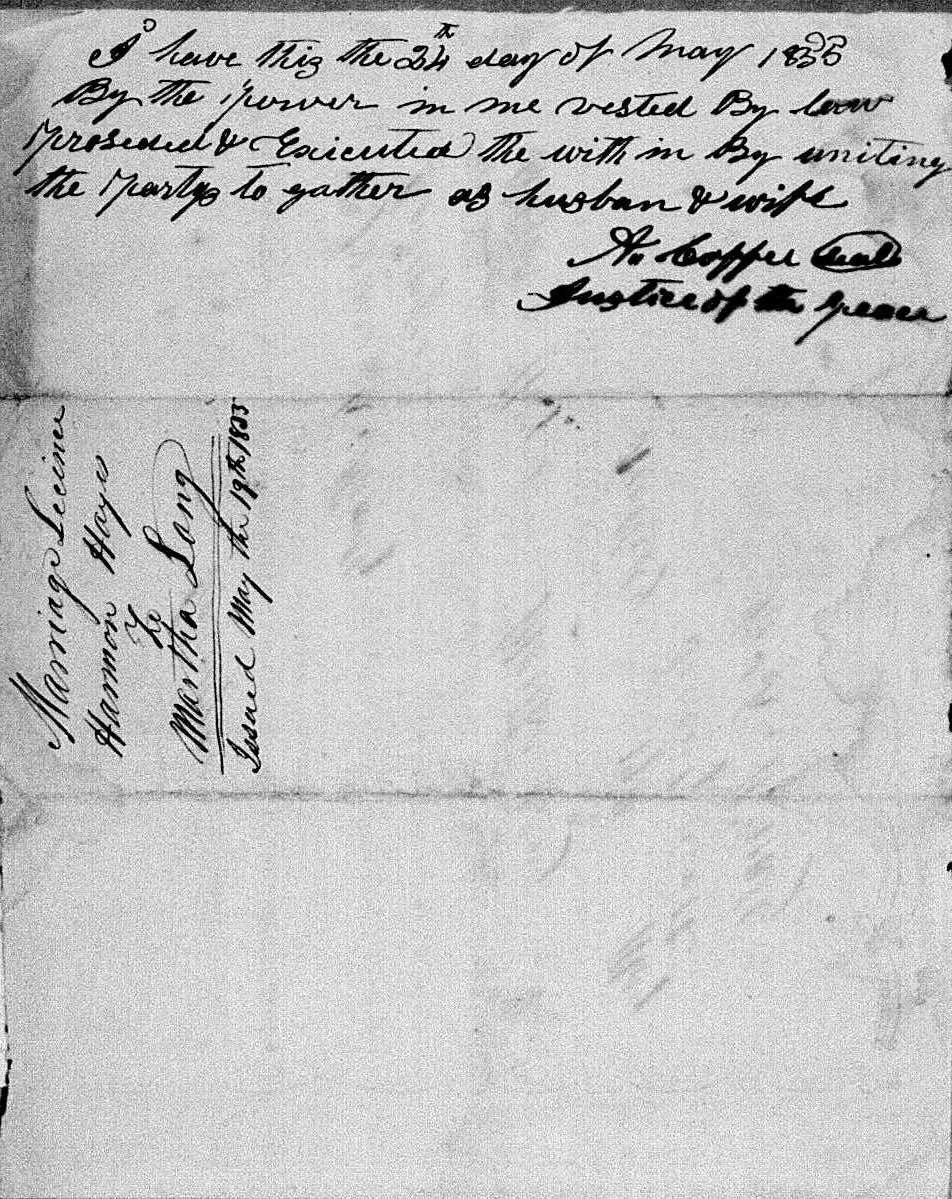 I have this the 24th day of May 1855
By the power in me vested By law
Proseded & Executed the with in By uniting
the Partys to gather as husban & wife
A. Copper Seal
Justice of the peace
Marriage Lecince
Harmon Hays
To
Martha Lang
Issued May the 19th 1855